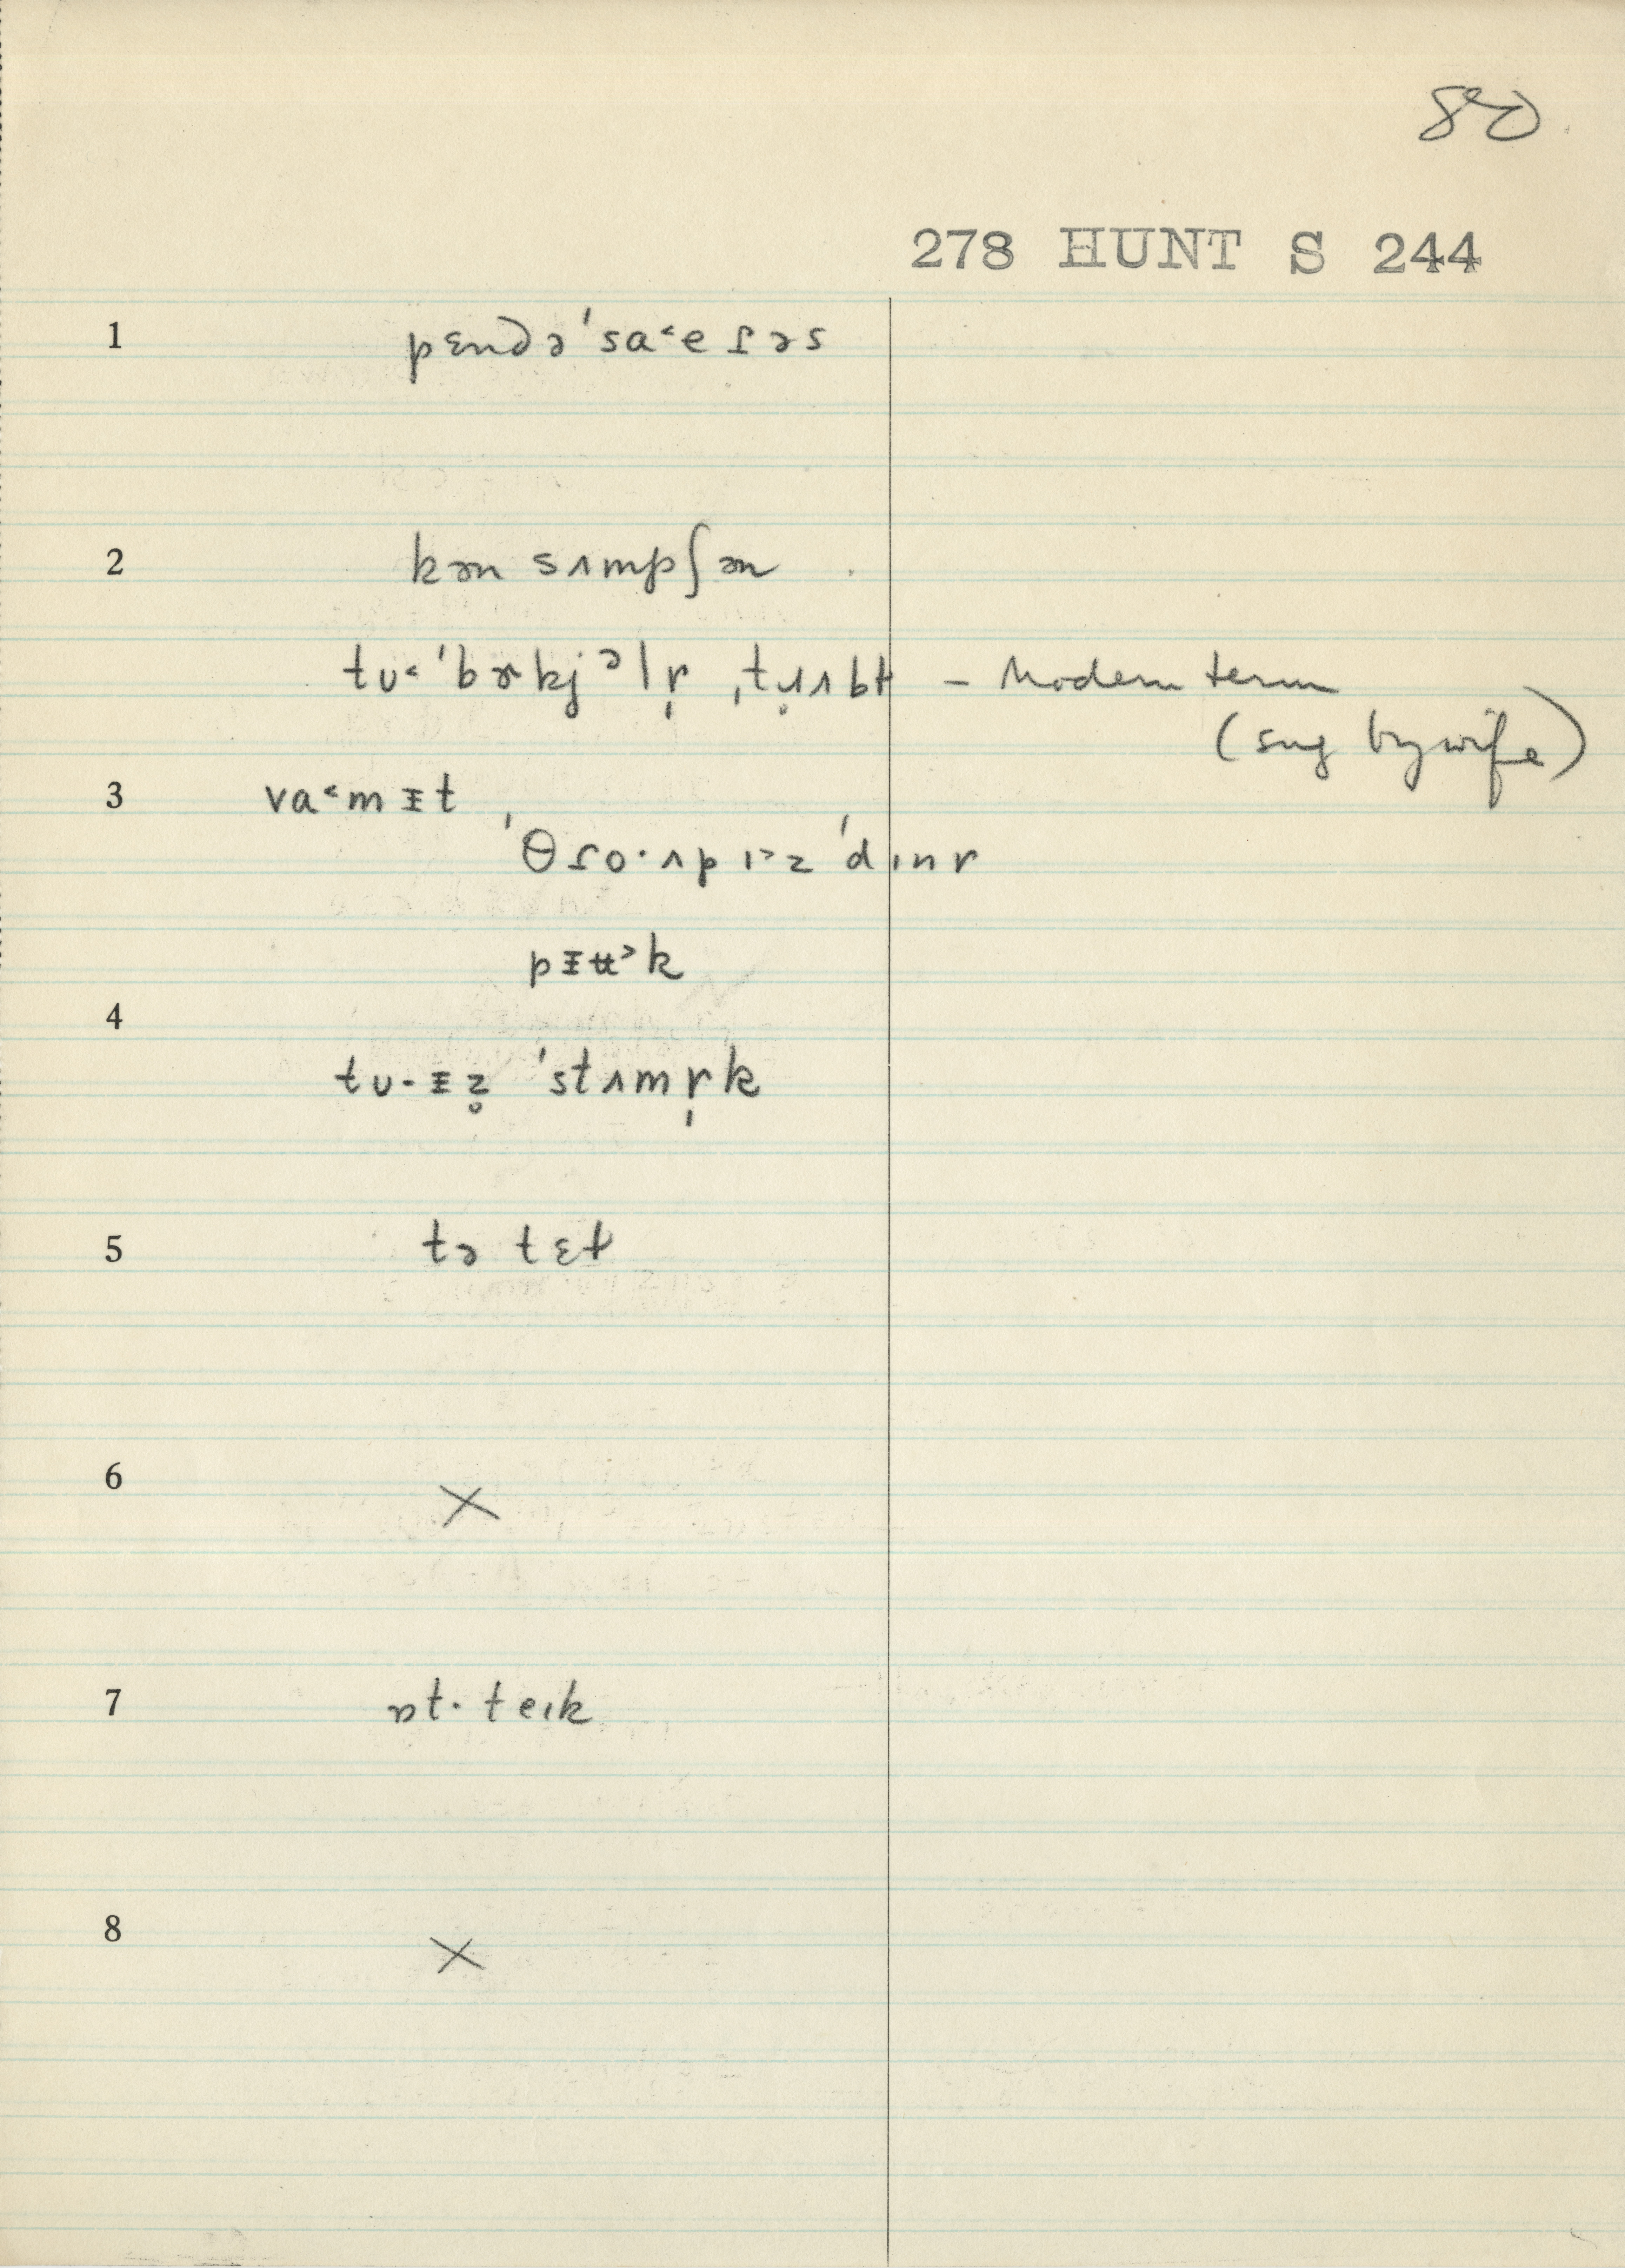 80
278 HUNT S 244
1 pɛndə'sa˂eɾəs
2 kən sʌmpʃən
tʊ˂'bɚkjᵊlr̩ ˌtɹ̥ʌbɫ – Modern term
(sug by wife)
3 va˂mɪ̵t
'θɾo·ʌpɪ˃z 'dɪnr
pɪ̵ʉ˃k
4
tʊ·ɪ̵z̥ 'stʌmr̩k
5 tə tɛt
6 X
7 ɒt·teɪk
8 X